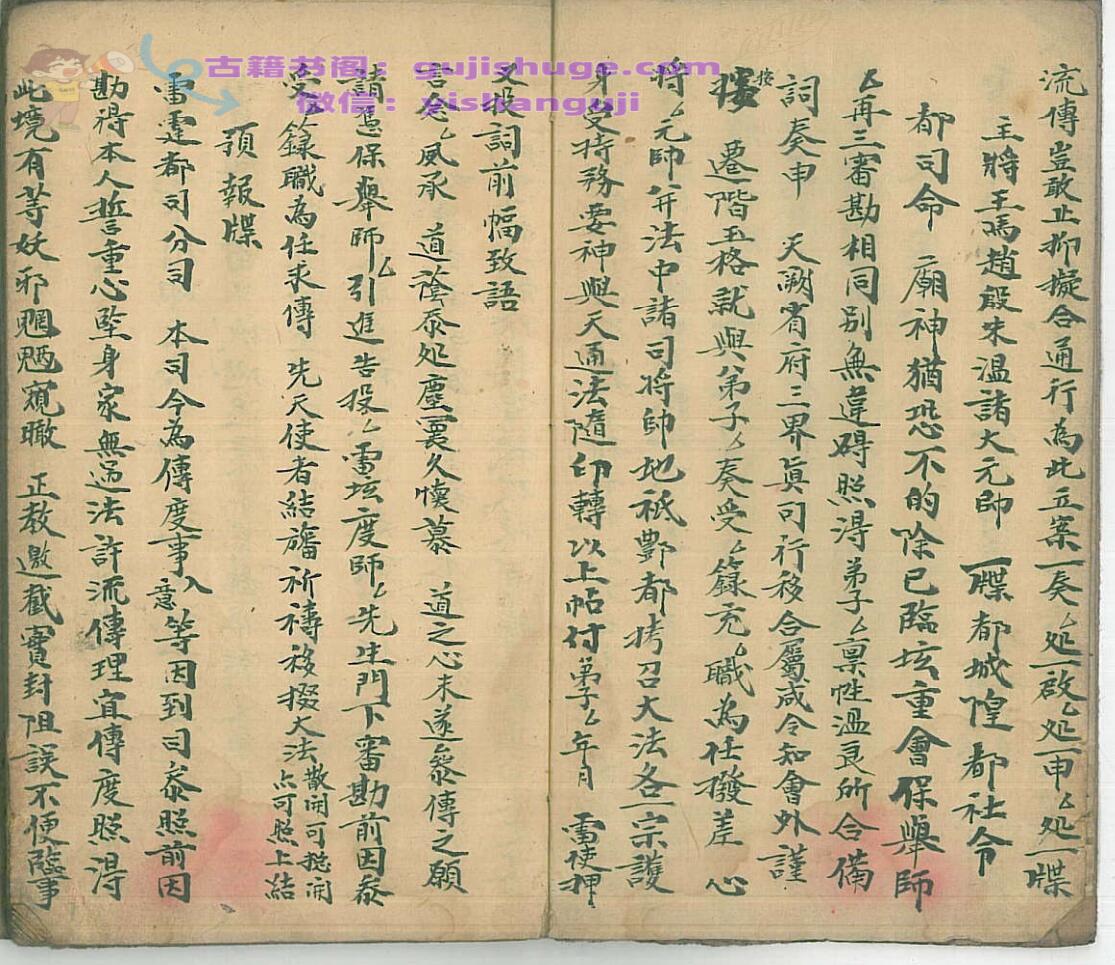 流傳豈敢止抑擬合通行為此立案一奏厶处一啟厶处一申厶处一牒
主將王馬趙殷朱溫諸大元帥 一牒都城隍都社令
都司命 廟神猶恐不的除已臨坛重會保舉師
厶再三審勘相同別無違碍照得弟子厶禀性温良所合備
詞奏申 天闕省府三界真司行移合屬咸令知會外謹
按 遷階玉格就與弟子厶奏受厶籙充厶職為任撥差 心
將厶元帥并法中諸司将帥地祇酆都拷召大法各一宗護
身受持務要神與天通法隨印轉以上帖付弟子厶年月 雷使押
又投詞前幅致語
言念厶夙承 道蔭忝处塵寰久懷慕 道之心未遂參傳之願
請憑保舉師厶引進告投厶雷坛度師厶先生門下審勘前因忝
受厶籙職為任求傳 先天使者結旛祈禱移掇大法散開可挽開
点可照上結
預報牒
雷霆都司分司 本司今為傳度事入意等因到司忝照前因
勘得本人誓重心堅身家無過法許流傳理宜傳度照得
此境有等妖邪魍魎窺瞰 正教邀截賫封阻誤不便臨事
古籍书阁：gujishuge.com
微信：yishanguji